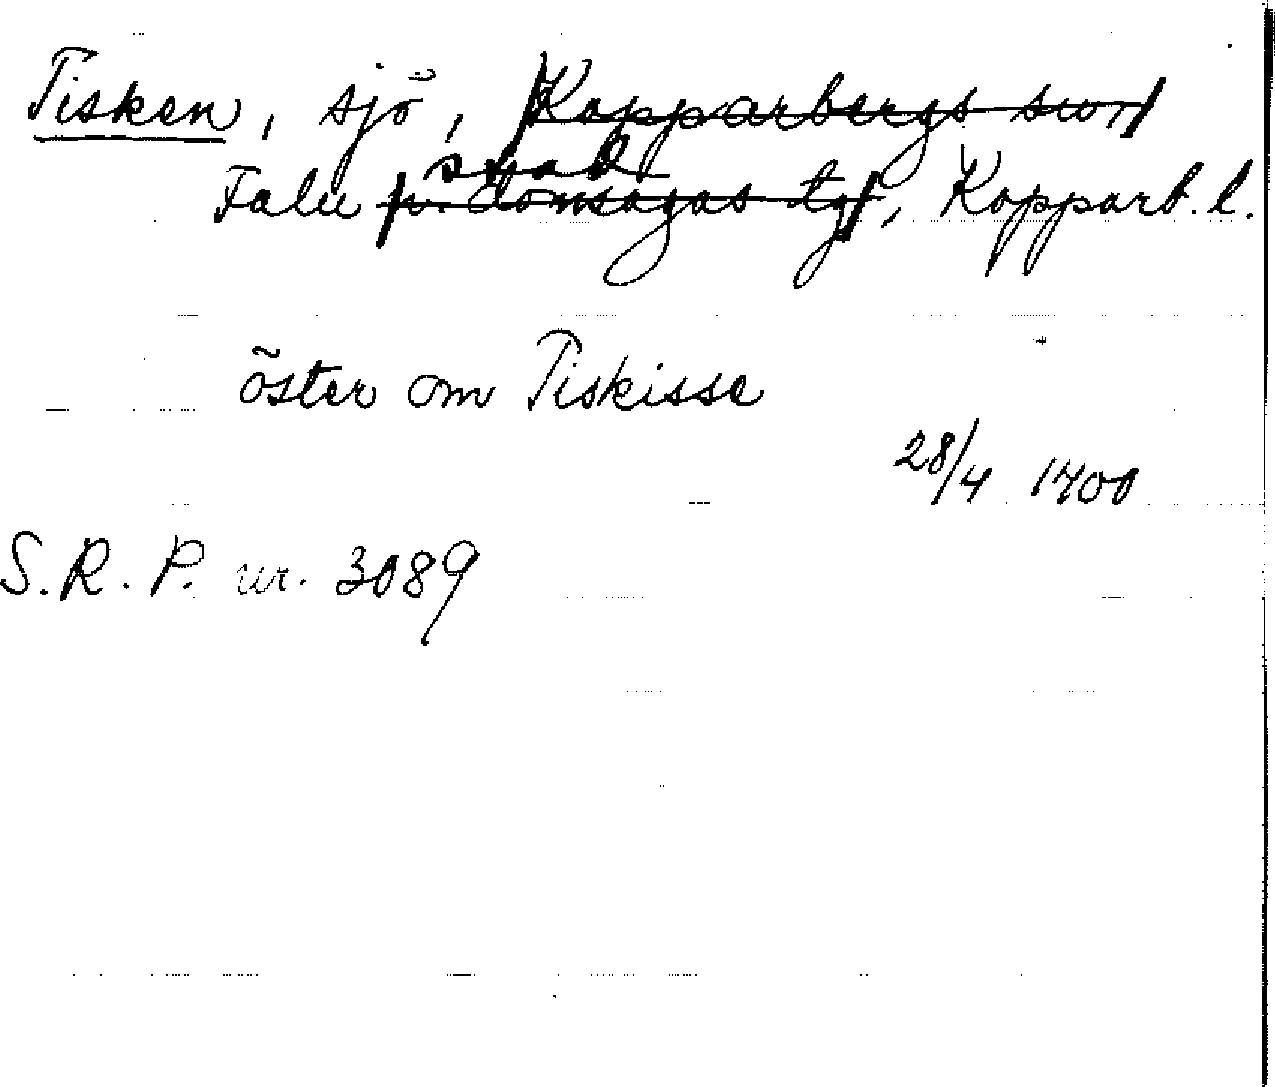 Tisken, sjö, Kopparbergs sn
stad
Falu n. domsagas tg, Kopparb. l.
öster om Tiskisse
28/4 1400
S. R. P. nr. 3089